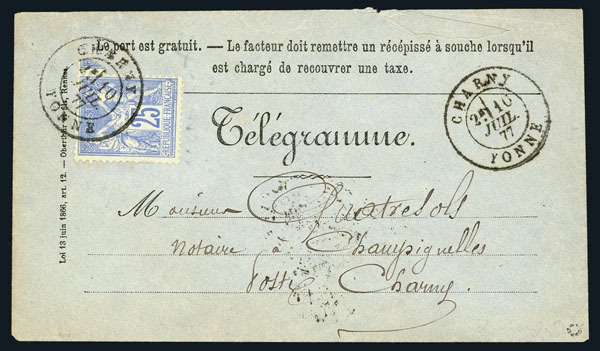 Le port est gratuit. — Le facteur doit remettre un récépissé à souche lorsqu'il
est chargé de recouvrer une taxe.
CHARNY
10
JUIL
77
YONNE
25
REPUBLIQUE FRANÇAISE
CHARNY
2E 10
JUIL
77
YONNE
Télégramme.
Loi 13 juin 1866, art. 12. — Oberthur
Rennes
Monsieur Quatresols
notaire à Champignelles
Poste Charny